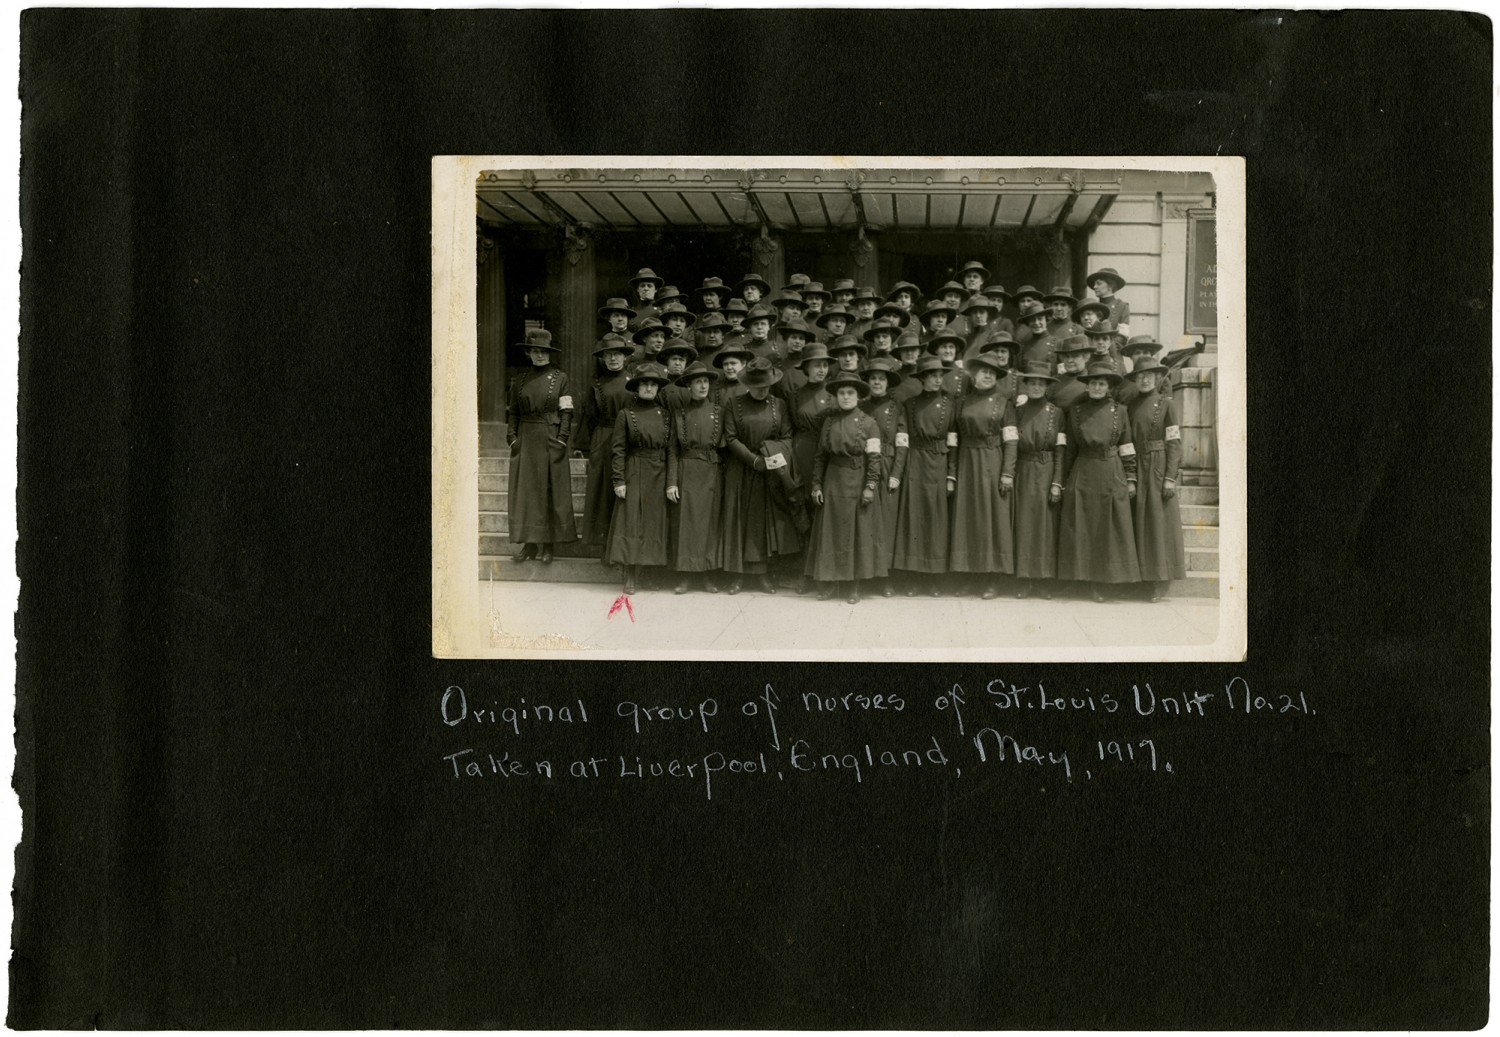 Original group of nurses of St. Louis Unit No. 21.
Taken at Liverpool, England, May, 1917.